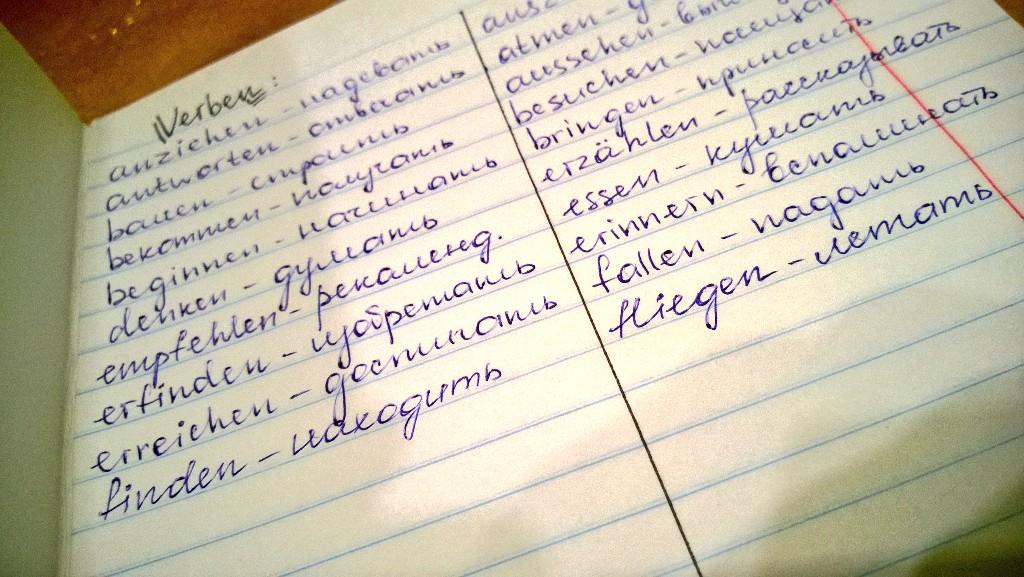 Verben:
anziehen - надевать
antworten - отвечать
bauen - строить
bekommen - получать
beginnen - начинать
denken - думать
empfehlen - рекоменд.
erfinden - изобретать
erreichen - достигать
finden - находить
atmen -
aussehen -
besuchen - посещать
bringen - приносить
erzählen - рассказывать
essen - кушать
erinnern - вспоминать
fallen - падать
fliegen - летать